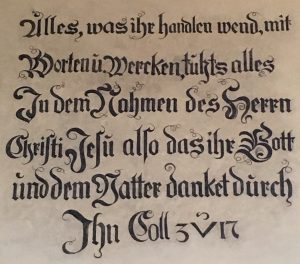 Alles, was ihr handlen wend, mit
Worten ů Wercken, tuhts alles
In dem Nahmen des Herrn
Christi Jesu also das ihr Gott
und dem Vatter danket durch
Ihn Coll 3 V 17